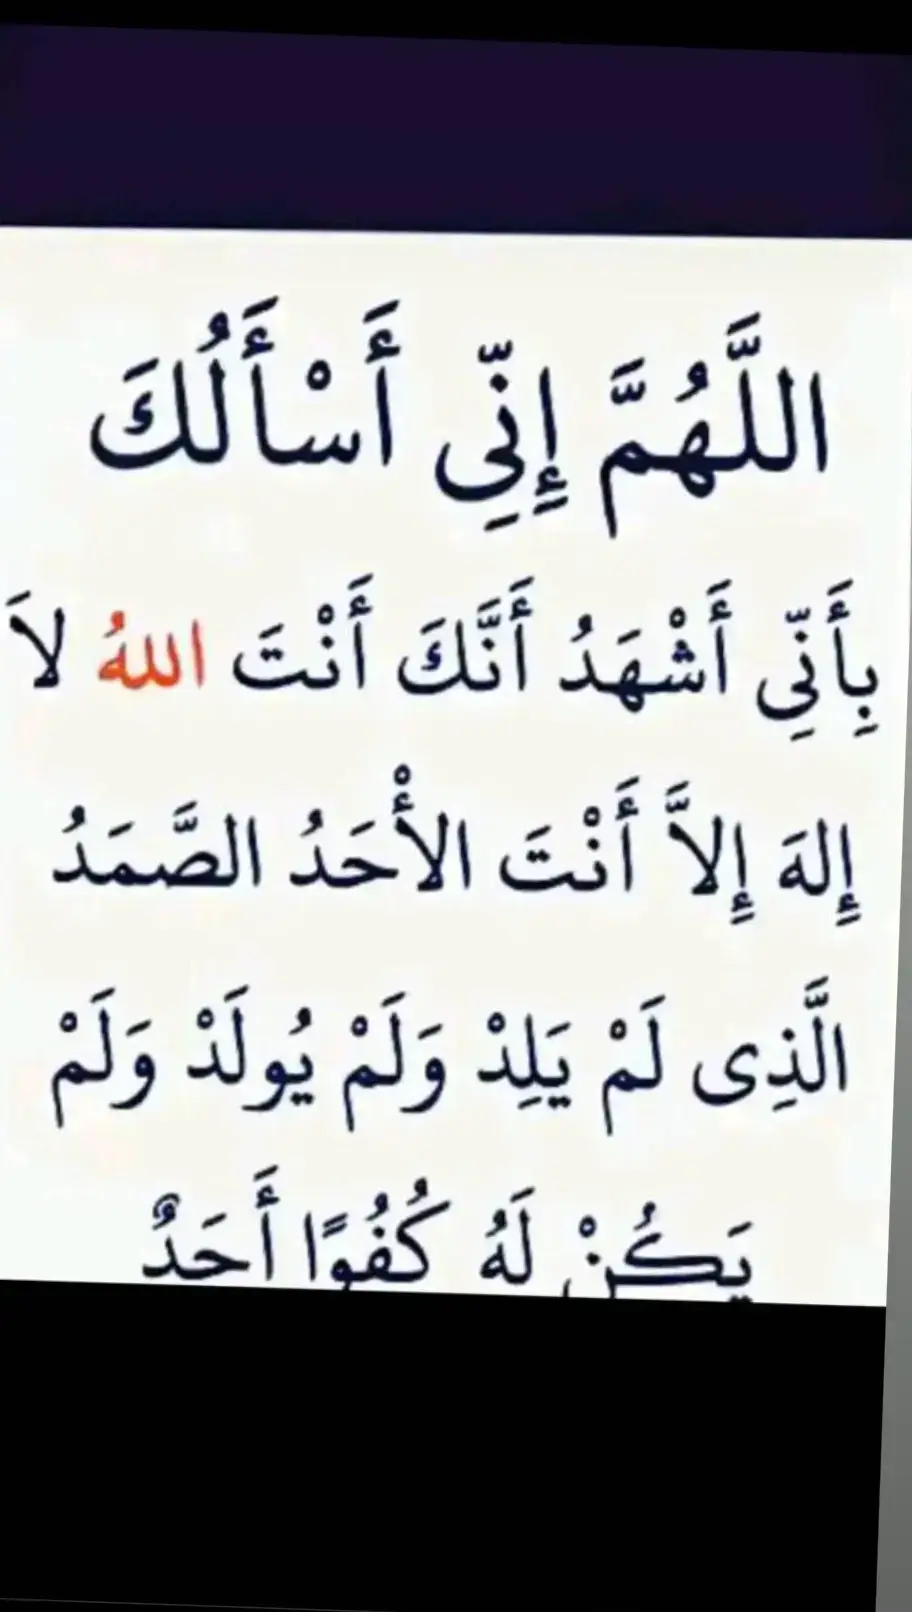 اللَّهُمَّ إِنِّي أَسْأَلُكَ
بِأَنِّي أَشْهَدُ أَنَّكَ أَنْتَ اللهُ لاَ
إِلهَ إِلاَّ أَنْتَ الأْحَدُ الصَّمَدُ
الَّذِى لَمْ يَلِدْ وَلَمْ يُولَدْ وَلَمْ
يَكُنْ لَهُ كُفُوًا أَحَدٌ